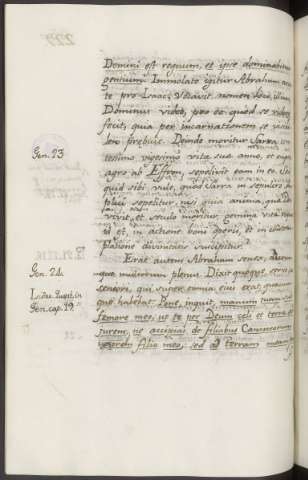 Domini est regnum, et ipse dominabitur
gentium. Immolato igitur Abraham arie-
te pro Isaac, vocavit nomen loci illius
Dominus videt, pro eo quod se videri
fecit, quia per incarnationem se viden-
dum prebuit. Deinde moritur Sarra cen-
Gen. 23
tesimo vigesimo vita sua anno, et in
agro ab Effron sepelivit eam in eo.
quid sibi vult, quod Sarra in sepulcro
duplici sepelitur, nisi quia anima, que Deo
vivit, et seculo moritur, gemina vita
et, in actione boni operis, et in contem-
platione divinitatis suscipitur?
Erat autem Abraham senex, dierum-
Gen. 24
que multorum plenus. Dixit quoque servo
seniori, qui super omnia eius erat, quamvis
que habebat: Pone, inquit, manum tuam sub
Gen. cap. 19
femore meo, ut te per Deum celi et terre
jurem, ne accipias de filiabus Cananeorum
uxorem filio meo, sed ad terram